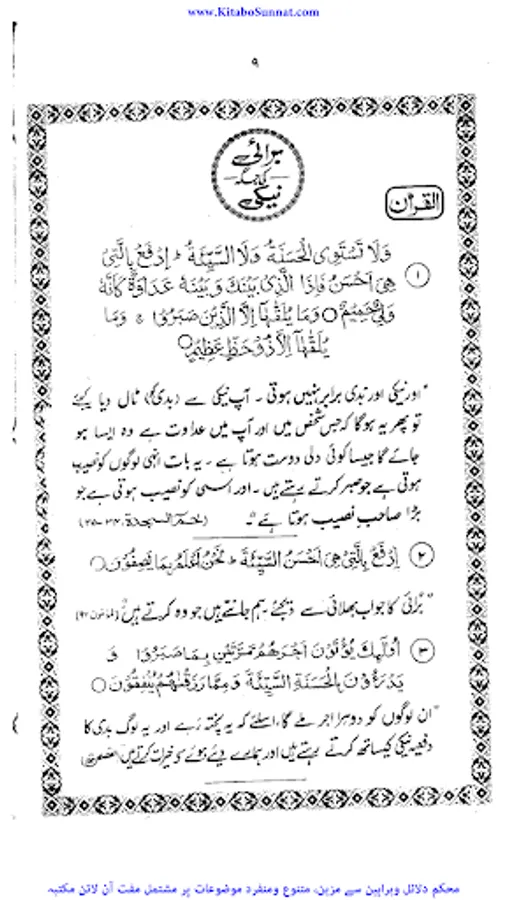 www.KitaboSunnat.com
۹
برائی
کی جگہ
نیکی
القرآن
وَلَا تَسْتَوِی الْحَسَنَةُ وَلَا السَّیِّئَةُ ؕ اِدْفَعْ بِالَّتِیْ
۱ هِیَ اَحْسَنُ فَاِذَا الَّذِیْ بَیْنَكَ وَ بَیْنَهٗ عَدَاوَةٌ كَاَنَّهٗ
وَلِیٌّ حَمِیْمٌ ○ وَمَا یُلَقّٰهَاۤ اِلَّا الَّذِیْنَ صَبَرُوْا ۚ وَمَا
یُلَقّٰهَاۤ اِلَّا ذُوْحَظٍّ عَظِیْمٍ ○
"اور نیکی اور بدی برابر نہیں ہوتی۔ آپ نیکی سے (بدی کو) ٹال دیا کیجئے
تو پھر یہ ہوگا کہ جس شخص میں اور آپ میں عداوت ہے وہ ایسا ہو
جائے گا جیسا کوئی دلی دوست ہوتا ہے۔ یہ بات انہی لوگوں کو نصیب
ہوتی ہے جو صبر کرتے رہتے ہیں۔ اور اسی کو نصیب ہوتی ہے جو
بڑا صاحب نصیب ہوتا ہے"۔ (حٰمٓ السجدة، ۳۴-۳۵)
۲ اِدْفَعْ بِالَّتِیْ هِیَ اَحْسَنُ السَّیِّئَةَ ؕ نَحْنُ اَعْلَمُ بِمَا یَصِفُوْنَ ○
"بُرائی کا جواب بھلائی سے دیجئے، ہم جانتے ہیں جو وہ کرتے ہیں"
۳ اُولٰٓئِكَ یُؤْتَوْنَ اَجْرَهُمْ مَّرَّتَیْنِ بِمَا صَبَرُوْا وَ
یَدْرَءُوْنَ بِالْحَسَنَةِ السَّیِّئَةَ وَمِمَّا رَزَقْنٰهُمْ یُنْفِقُوْنَ ○
"ان لوگوں کو دوہرا اجر ملے گا، اسلئے کہ یہ پختہ رہے اور یہ لوگ بدی کا
دفعیہ نیکی کیساتھ کرتے رہتے ہیں اور ہمارے دیے ہوئے کو خیرات کرتے ہیں (قصص)
محکم دلائل وبراہین سے مزین، متنوع ومنفرد موضوعات پر مشتمل مفت آن لائن مکتبہ